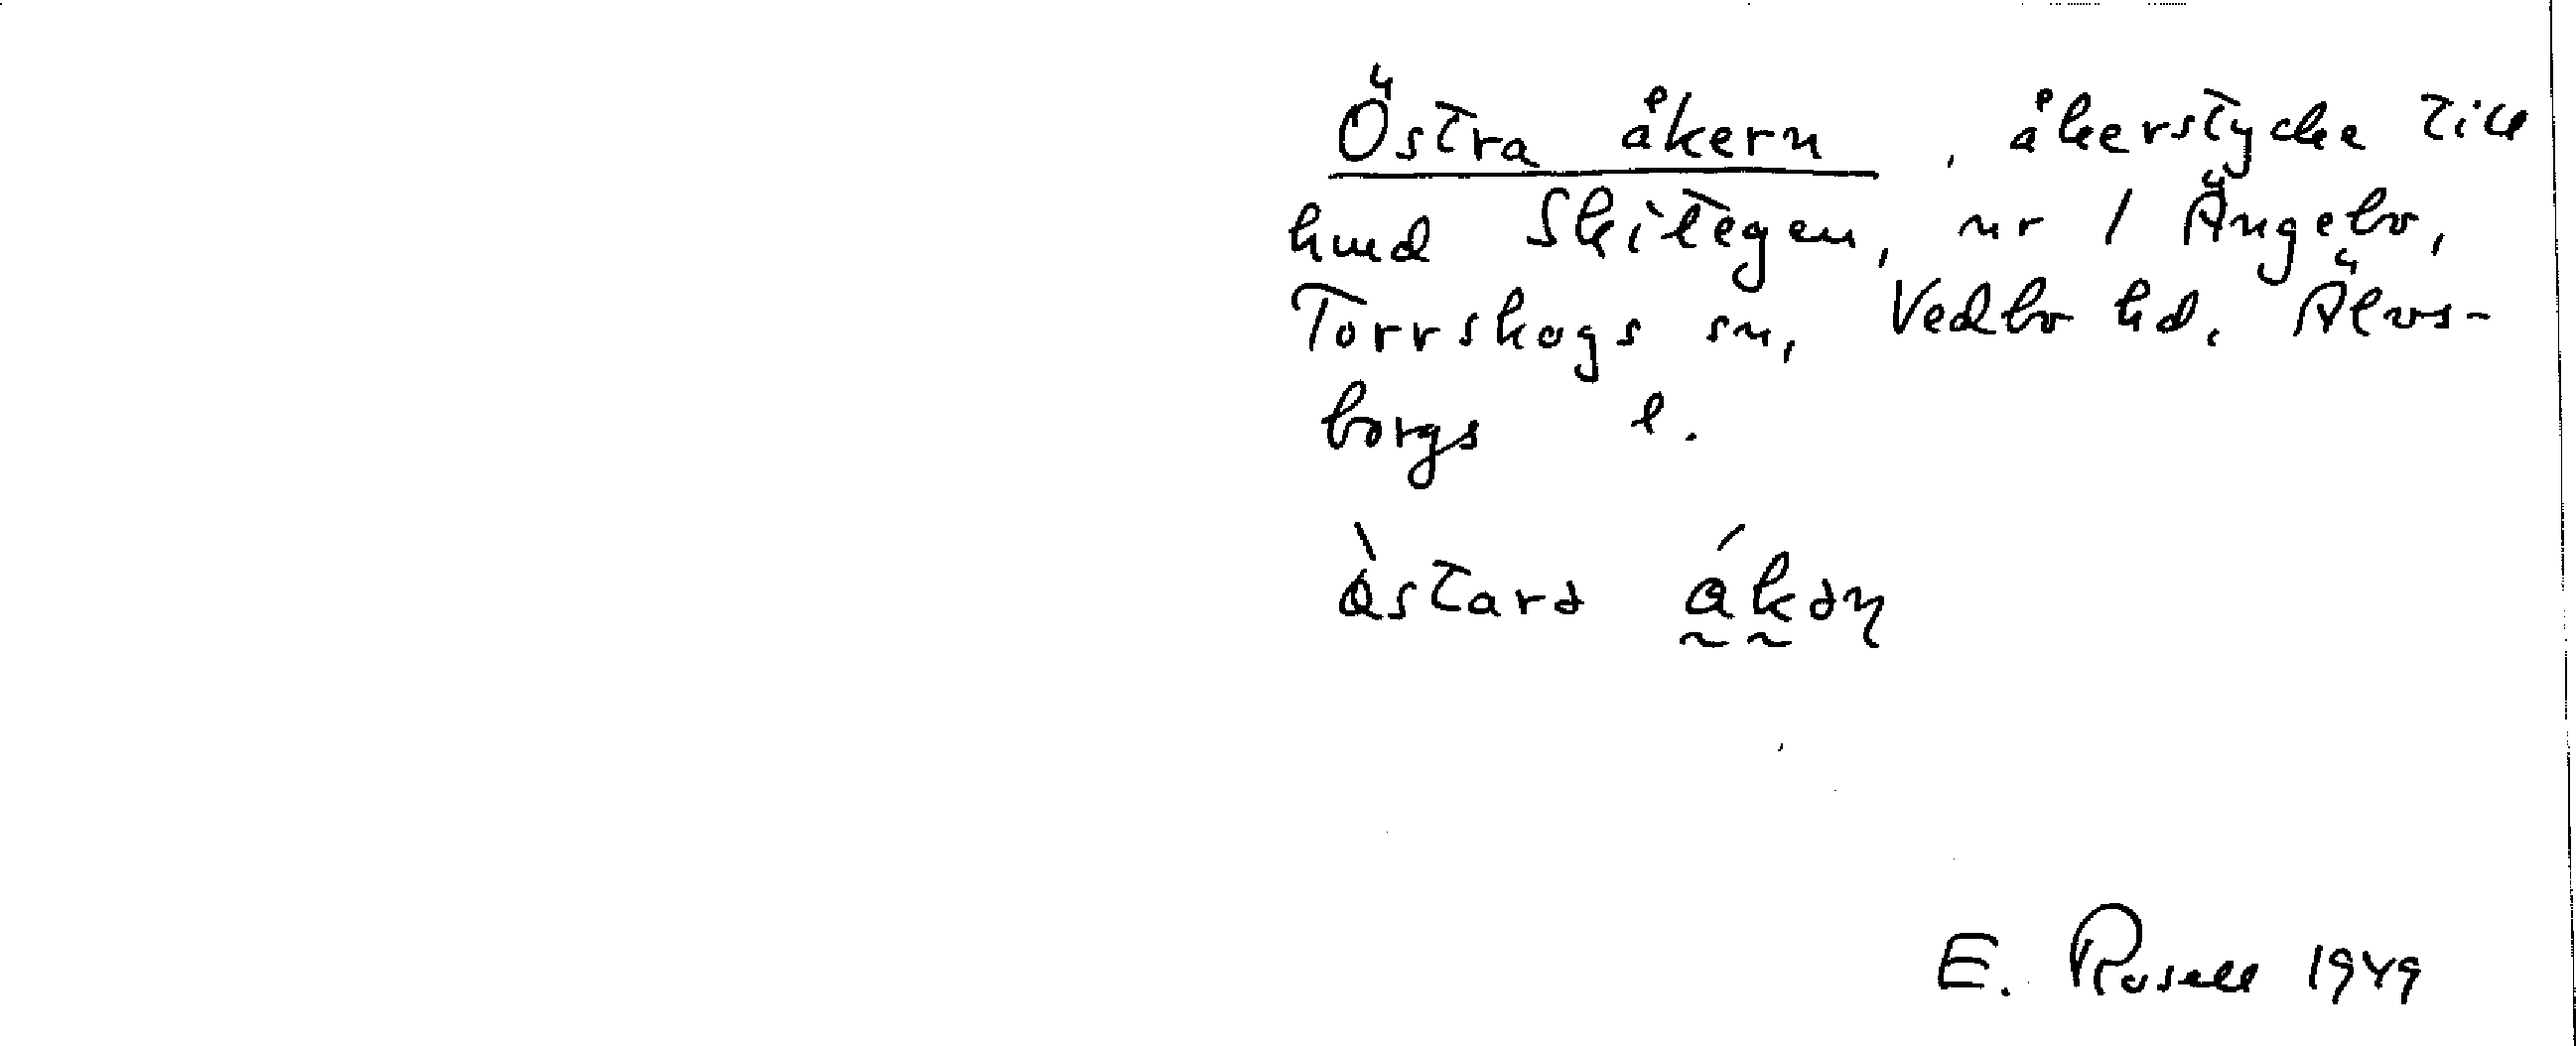 Östra åkern, åkerstycke till
hmd Skitegen, nr 1 Ängebo,
Torrskogs sn, Vedbo hd. Älvs-
borgs l.
E. Rosell 1949